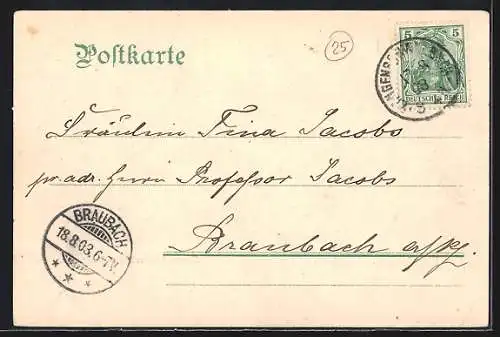 Postkarte
25
5 5
DEUTSCHES REICH
Fräulein Tina Jacobs
pr. adr. Herrn Professor Jacobs
Braubach a/Rh.
BRAUBACH
18.8.03.6-7N.